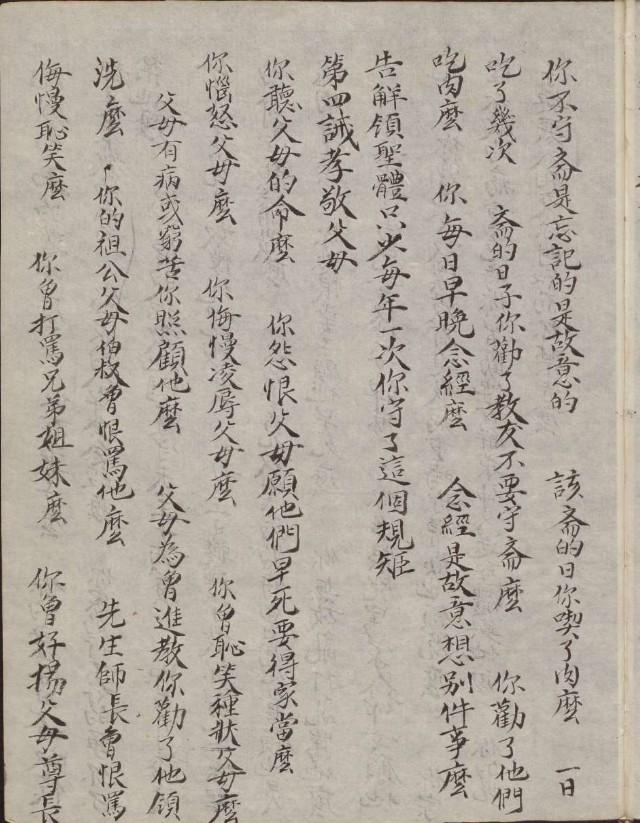 你不守斋是忘記的是故意的 該斋的日你喫了肉麽 一日
吃了幾次 斋的日子你勸了教友不要守斋麽 你勸了他們
吃肉麽 你每日早晚念經麽 念經是故意想别件事麽
告解領聖體只少每年一次你守了這個規矩
第四誡孝敬父母
你聽父母的命麽 你怨恨父母願他們早死要得家當麽
你惱怒父母麽 你侮慢凌辱父母麽 你曾恥笑種狀父母麽
父母有病或窮苦你照顧他麽 父母為曾進教你勸了他領
洗麽 你的祖公父母伯叔曾恨罵他麽 先生師長曾恨罵
侮慢恥笑麽 你曾打罵兄弟姐妹麽 你曾好揚父母尊長